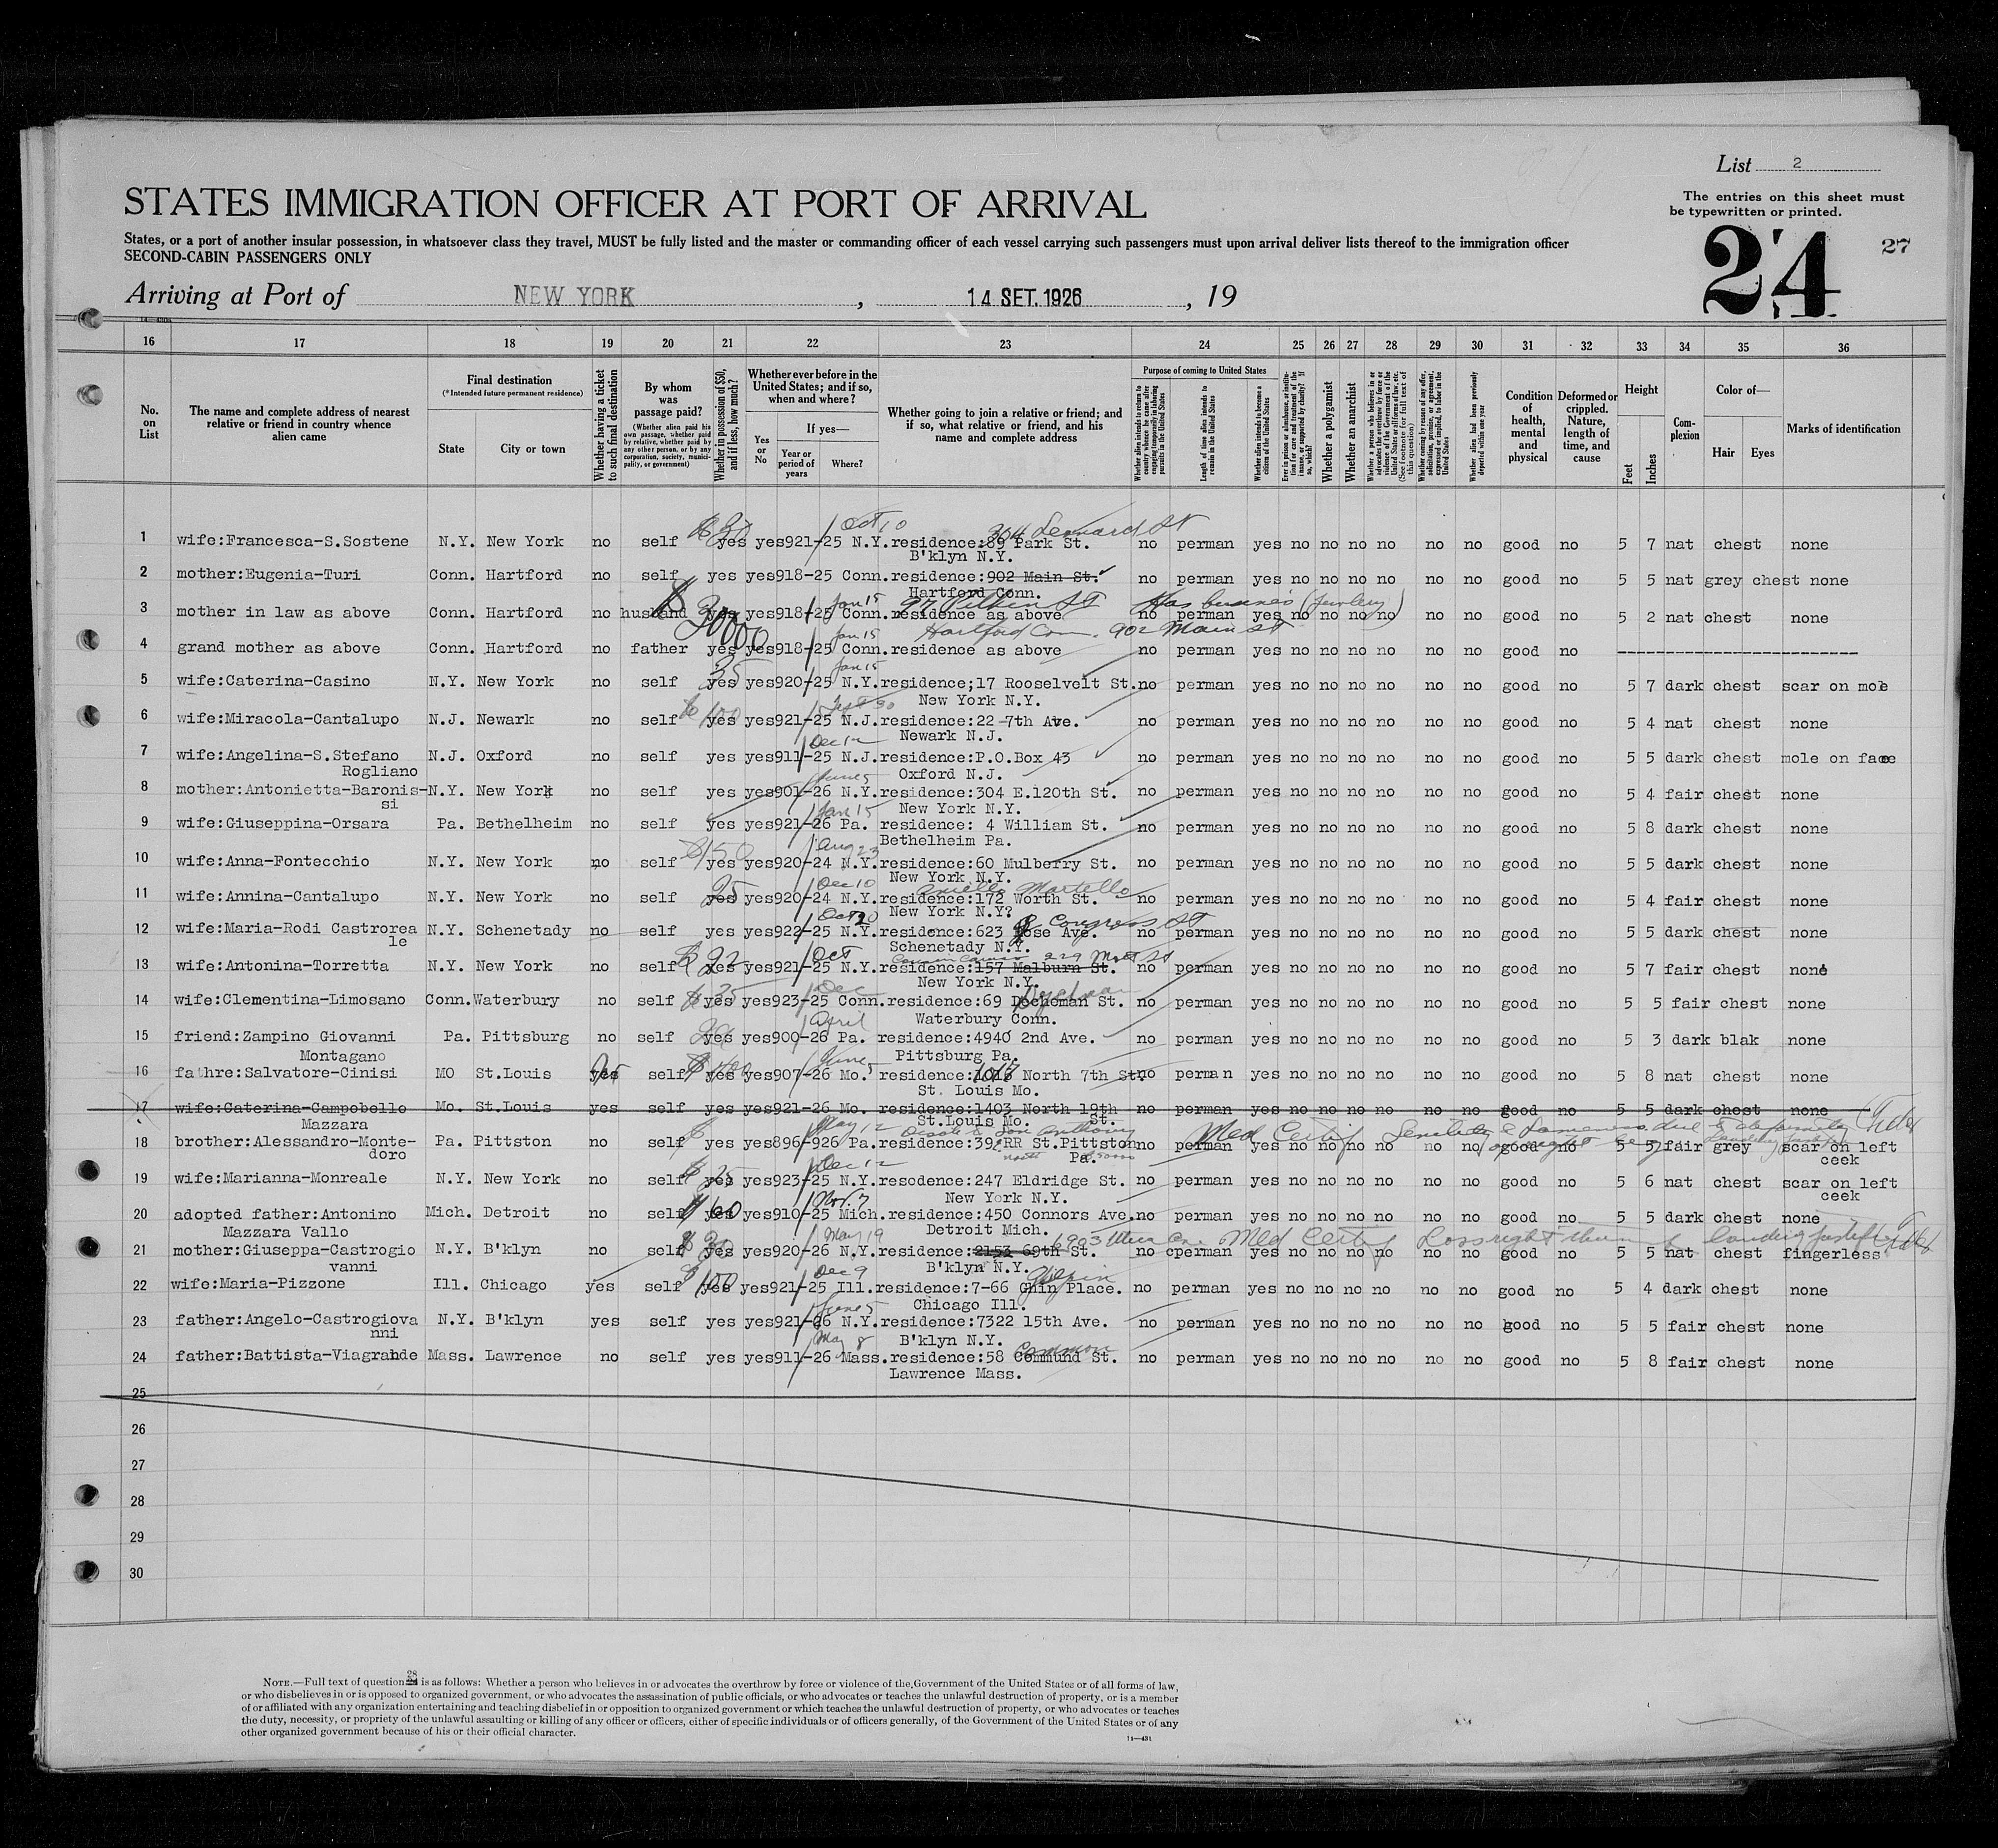 List 2
STATES IMMIGRATION OFFICER AT PORT OF ARRIVAL
The entries on this sheet must
be typewritten or printed.
States, or a port of another insular possession, in whatsoever class they travel, MUST be fully listed and the master or commanding officer of each vessel carrying such passengers must upon arrival deliver lists thereof to the immigration officer
SECOND-CABIN PASSENGERS ONLY
24 27
Arriving at Port of NEW YORK, 14 SET. 1926, 19
16 17 18 19 20 21 22 23 24 25 26 27 28 29 30 31 32 33 34 35 36
No. on List
The name and complete address of nearest relative or friend in country whence alien came
Final destination
(*Intended future permanent residence)
State
City or town
Whether having a ticket to such final destination
By whom was passage paid?
(Whether alien paid his own passage, whether paid by relative, whether paid by any other person, or by any corporation, society, municipality, or government)
Whether in possession of $50, and if less, how much?
Whether ever before in the United States; and if so, when and where?
Yes or No
If yes—
Year or period of years
Where?
Whether going to join a relative or friend; and if so, what relative or friend, and his name and complete address
Purpose of coming to United States
Length of time alien intends to remain in the United States
Whether alien intends to become a citizen of the United States
Whether a polygamist
Whether an anarchist
Condition of health, mental and physical
Deformed or crippled. Nature, length of time, and cause
Height
Feet
Inches
Complexion
Color of—
Hair
Eyes
Marks of identification
1 wife:Francesca-S.Sostene N.Y. New York no self $30 yes yes 921-25 Oct 10 N.Y. residence:89 Park St. 304 Leonard St no perman yes no no no no no no good no 5 7 nat chest none
B'klyn N.Y.
2 mother:Eugenia-Turi Conn. Hartford no self yes yes 918-25 Conn. residence:902 Main St. no perman yes no no no no no no good no 5 5 nat grey chest none
Hartford Conn.
3 mother in law as above Conn. Hartford no husband yes yes 918-25 Jan 15 Conn. residence as above Has business (Jewlery) no perman yes no no no no no no good no 5 2 nat chest none
Hartford Conn. 902 Main St
4 grand mother as above Conn. Hartford no father yes yes 918-25 Jan 15 Conn. residence as above no perman yes no no no no no no good no
5 wife:Caterina-Casino N.Y. New York no self 35 yes yes 920-25 Jan 15 N.Y. residence;17 Rooselveit St. no perman yes no no no no no no good no 5 7 dark chest scar on mole
New York N.Y.
6 wife:Miracola-Cantalupo N.J. Newark no self $100 yes yes 921-25 N.J. residence:22-7th Ave. no perman yes no no no no no no good no 5 4 nat chest none
Newark N.J.
7 wife:Angelina-S.Stefano N.J. Oxford no self yes yes 911-25 Dec 12 N.J. residence:P.O.Box 43 no perman yes no no no no no no good no 5 5 dark chest mole on face
Rogliano Oxford N.J.
8 mother:Antonietta-Baronis- N.Y. New York no self yes yes 901-26 June 5 N.Y. residence:304 E.120th St. no perman yes no no no no no no good no 5 4 fair chest none
si New York N.Y.
9 wife:Giuseppina-Orsara Pa. Bethelheim no self yes yes 921-26 Jan 15 Pa. residence: 4 William St. no perman yes no no no no no no good no 5 8 dark chest none
Bethelheim Pa.
10 wife:Anna-Fontecchio N.Y. New York no self $150 yes yes 920-24 Aug 23 N.Y. residence:60 Mulberry St. no perman yes no no no no no no good no 5 5 dark chest none
New York N.Y.
11 wife:Annina-Cantalupo N.Y. New York no self 25 yes yes 920-24 Dec 10 N.Y. residence:172 Worth St. Aniello Martello no perman yes no no no no no no good no 5 4 fair chest none
New York N.Y?
12 wife:Maria-Rodi Castrorea N.Y. Schenetady no self yes yes 922-25 Oct 20 N.Y. residence:623 Ave. Congress St no perman yes no no no no no no good no 5 5 dark chest none
le Schenetady N.Y.
13 wife:Antonina-Torretta N.Y. New York no self $22 yes yes 921-25 Oct N.Y. residence:157 Malburn St. 229 Mott St no perman yes no no no no no no good no 5 7 fair chest none
New York N.Y.
14 wife:Clementina-Limosano Conn. Waterbury no self $35 yes yes 923-25 Dec Conn. residence:69 Docheman St. no perman yes no no no no no no good no 5 5 fair chest none
Waterbury Conn.
15 friend:Zampino Giovanni Pa. Pittsburg no self yes yes 900-26 April Pa. residence:4940 2nd Ave. no perman yes no no no no no no good no 5 3 dark blak none
Montagano Pittsburg Pa.
16 fathre:Salvatore-Cinisi MO St.Louis yes self yes yes 907-26 June 5 Mo. residence:1017 North 7th St. no perman yes no no no no no no good no 5 8 nat chest none
St. Louis Mo.
17 wife:Caterina-Campobello Mo. St.Louis yes self yes yes 921-26 Mo. residence:1403 North 19th no perman yes no no no no no no good no 5 5 dark chest none
Mazzara St.Louis Mo. St.
18 brother:Alessandro-Monte- Pa. Pittston no self yes yes 896-926 May 12 Pa. residence:392 RR St.Pittston no perman yes no no no no no no good no 5 5 fair grey scar on left
doro Pa. ceek
Med Certif Senility & Lameness due to deformity of right leg
19 wife:Marianna-Monreale N.Y. New York no self $25 yes yes 923-25 Dec 12 N.Y. resodence:247 Eldridge St. no perman yes no no no no no no good no 5 6 nat chest scar on left
New York N.Y. ceek
20 adopted father:Antonino Mich. Detroit no self $60 yes yes 910-25 Nov. 7 Mich. residence:450 Connors Ave. no perman yes no no no no no no good no 5 5 dark chest none
Mazzara Vallo Detroit Mich.
21 mother:Giuseppa-Castrogio N.Y. B'klyn no self $30 yes yes 920-26 May 19 N.Y. residence:2153 69th St. 1903 Utica Med Certif Loss right thumb no cperman yes no no no no no no good no 5 5 nat chest fingerless
vanni B'klyn N.Y.
22 wife:Maria-Pizzone Ill. Chicago yes self $100 yes yes 921-25 Dec 9 Ill. residence:7-66 Ghin Place. Gilpin no perman yes no no no no no no good no 5 4 dark chest none
Chicago Ill.
23 father:Angelo-Castrogiova N.Y. B'klyn yes self yes yes 921-26 June 5 N.Y. residence:7322 15th Ave. no perman yes no no no no no no good no 5 5 fair chest none
nni B'klyn N.Y.
24 father:Battista-Viagrande Mass. Lawrence no self yes yes 911-26 May 8 Mass. residence:58 Commund St. Common no perman yes no no no no no no good no 5 8 fair chest none
Lawrence Mass.
25
26
27
28
29
30
NOTE.—Full text of question 28 is as follows: Whether a person who believes in or advocates the overthrow by force or violence of the Government of the United States or of all forms of law,
or who disbelieves in or is opposed to organized government, or who advocates the assassination of public officials, or who advocates or teaches the unlawful destruction of property, or is a member
of or affiliated with any organization entertaining and teaching disbelief in or opposition to organized government or which teaches the unlawful destruction of property, or who advocates or teaches
the duty, necessity, or propriety of the unlawful assaulting or killing of any officer or officers, either of specific individuals or of officers generally, of the Government of the United States or of any
other organized government because of his or their official character.
14—431